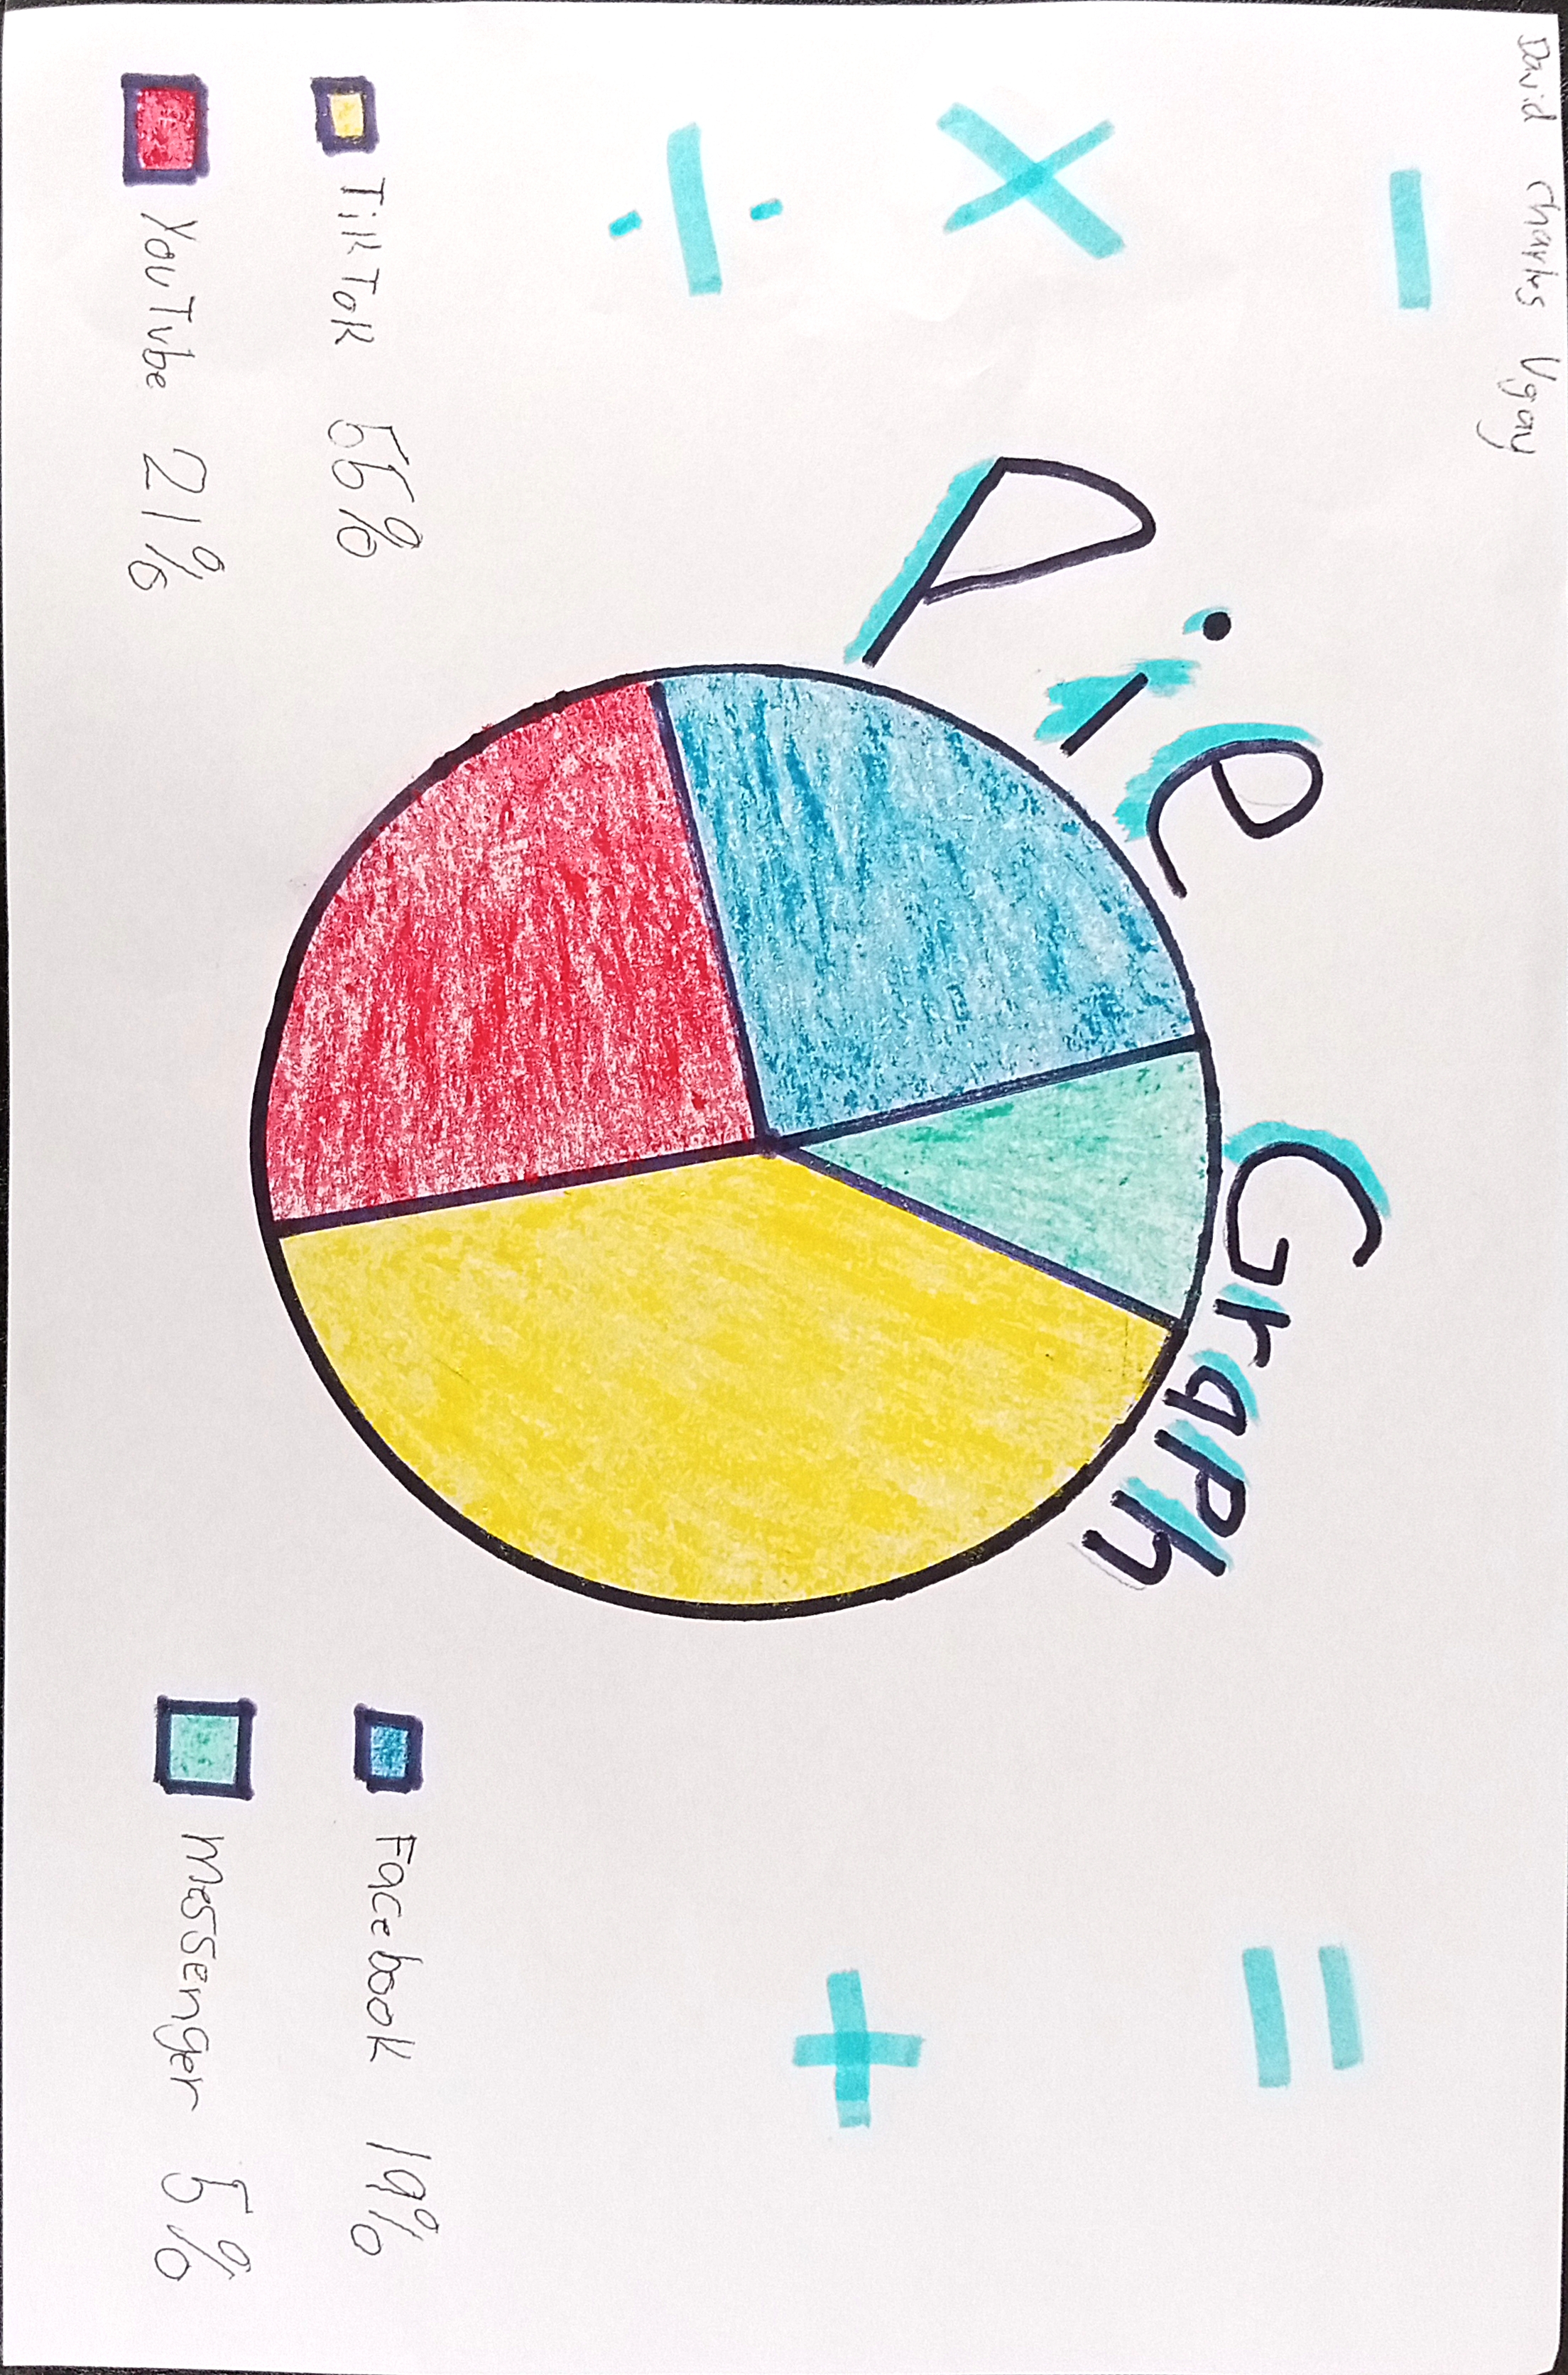 David Charles Ugay
−
×
÷
=
+
Pie Graph
TikTok 55%
YouTube 21%
Facebook 19%
Messenger 5%